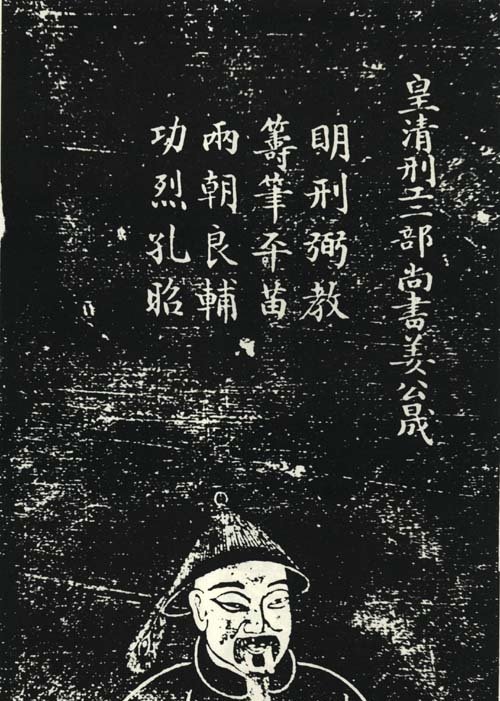 皇清刑工二部尚書姜公晟
明刑弼教
籌筆苗
兩朝良輔
功烈孔昭